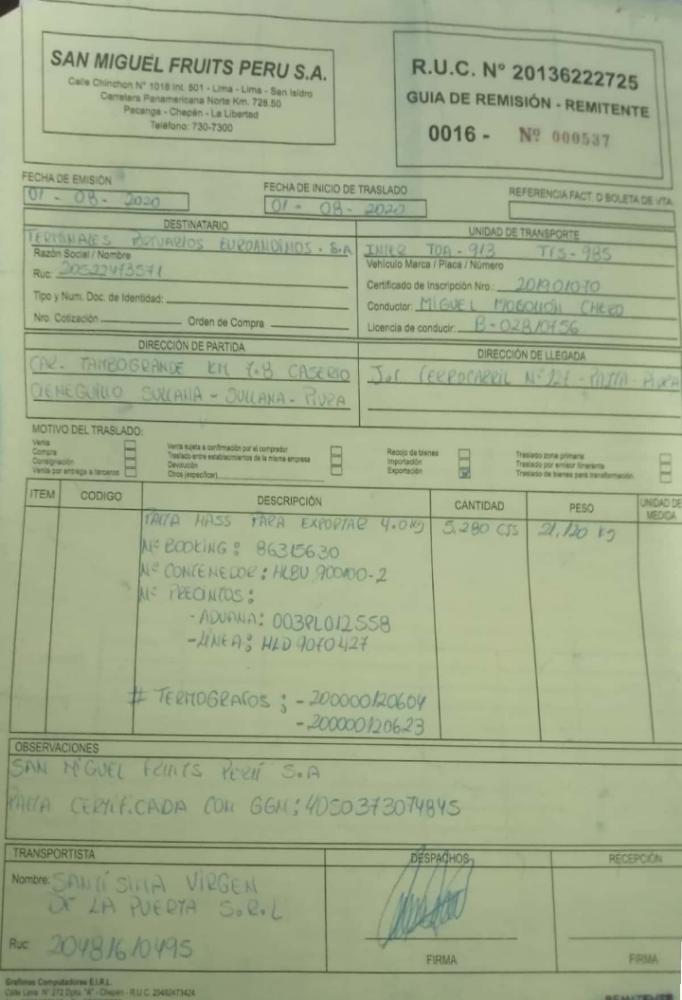 SAN MIGUEL FRUITS PERU S.A.
Calle Chinchon N° 1018 Int. 501 - Lima - Lima - San Isidro
Carretera Panamericana Norte Km. 728.50
Pacanga - Chepén - La Libertad
Teléfono: 730-7300
R.U.C. N° 20136222725
GUIA DE REMISIÓN - REMITENTE
0016 - Nº 000537
FECHA DE EMISIÓN
01 - 08 - 2020
FECHA DE INICIO DE TRASLADO
01 - 08 - 2020
REFERENCIA FACT. O BOLETA DE VTA.
DESTINATARIO
TERMINALES PORTUARIOS EUROANDINOS . S.A
Razón Social / Nombre
Ruc: 20522473571
Tipo y Num. Doc. de Identidad:
Nro. Cotización Orden de Compra
UNIDAD DE TRANSPORTE
INTER TOA - 913 TFS - 985
Vehículo Marca / Placa / Número
Certificado de Inscripción Nro.: 201901070
Conductor: MIGUEL MOGOLLÓN CHERO
Licencia de conducir: B-02810756
DIRECCIÓN DE PARTIDA
CAR. TAMBOGRANDE KM 7.8 CASERIO
CIENEGUILLO SULLANA - SULLANA - PIURA
DIRECCIÓN DE LLEGADA
Jr. FERROCARRIL Nº 127 - PAITA - PIURA
MOTIVO DEL TRASLADO:
Venta
Compra
Consignación
Venta por entrega a terceros
Venta sujeta a confirmación por el comprador
Traslado entre establecimientos de la misma empresa
Devolución
Otros (especificar)
Recojo de bienes
Importación
Exportación
Traslado zona primaria
Traslado por emisor itinerante
Traslado de bienes para transformación
ITEM CODIGO DESCRIPCIÓN CANTIDAD PESO UNIDAD DE MEDIDA
PALTA HASS PARA EXPORTAR 4.0kg 5,280 CJS 21,120 kg
Nº BOOKING : 86315630
Nº CONTENEDOR : HLBU 900100-2
Nº PRECINTOS :
- ADUANA: 003PL012558
- LÍNEA: HLD 9070427
# TERMOGRAFOS : - 200000120604
- 200000120623
OBSERVACIONES
SAN MIGUEL FRUITS PERÚ S.A
PALTA CERTIFICADA CON GGN: 4050373074845
TRANSPORTISTA
Nombre: SANTISIMA VIRGEN
DE LA PUERTA S.R.L
Ruc 20481610495
DESPACHOS
FIRMA
RECEPCIÓN
FIRMA
Graficas Computadores E.I.R.L.
Calle Lima N° 272 Dpto. "A" - Chepén - R.U.C. 20482473424
REMITENTE